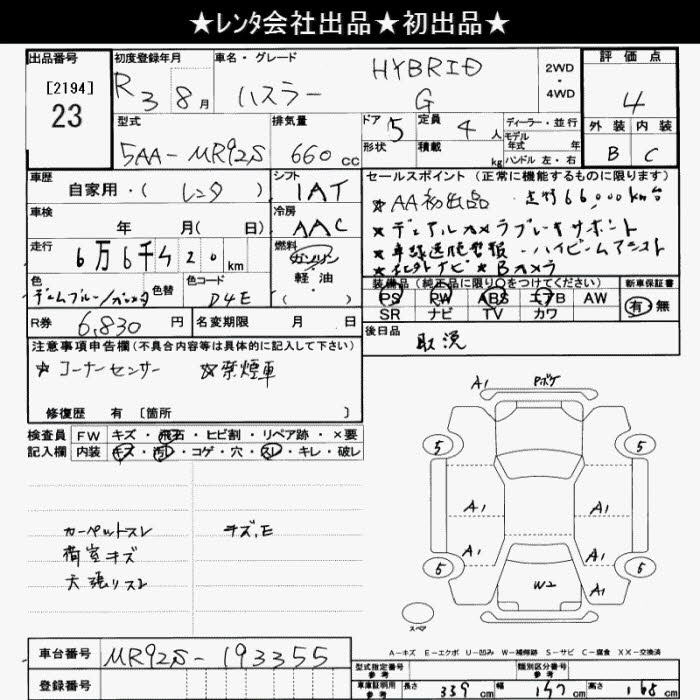 ★レンタ会社出品★初出品★
出品番号
[2194]
23
初度登録年月
R 3 8月
車名・グレード
HYBRID
ハスラー G
2WD
・
4WD
評価点
4
外装 内装
B C
型式
5AA-MR92S
排気量
660 cc
ドア 5
形状
定員 4 人
積載 kg
ディーラー・並行
モデル
年式 年
ハンドル 左・右
車歴
自家用・( レンタ )
シフト
IAT
車検
年 月( 日)
冷房
AAC
走行
6万6千 km
燃料
ガソリン
軽油
( )
色
色替
色コード
D4E
R券 6,830 円
名変期限 月 日
セールスポイント (正常に機能するものに限ります)
★AA初出品 走行66,000km台
★デュアルカメラブレーキサポート
★車線逸脱警報・ハイビームアシスト
ナビ ★Bカメラ
装備品(純正品に限り○をつけてください)
PS PW ABS エアB AW
SR ナビ TV カワ
新車保証書
有・無
後日品
取説
注意事項申告欄(不具合内容等は具体的に記入して下さい)
☆コーナーセンサー ☆禁煙車
修復歴 有 [箇所 ]
検査員
記入欄
FW キズ・飛石・ヒビ割・リペア跡・×要
内装 キズ・汚れ・コゲ・穴・スレ・キレ・破レ
カーペットスレ
荷室キズ
キズ,E
A1
5
5
A1
A1
A1
A1
5
5
W2
A1
スペア
A-キズ E-エクボ U-凹み W-補修跡 S-サビ C-腐食 XX-交換済
車台番号 MR92S-193355
登録番号
型式指定番号
参考
類別区分番号
参考
車庫証明用
参考
長さ 339 cm
幅 147 cm
高さ 168 cm